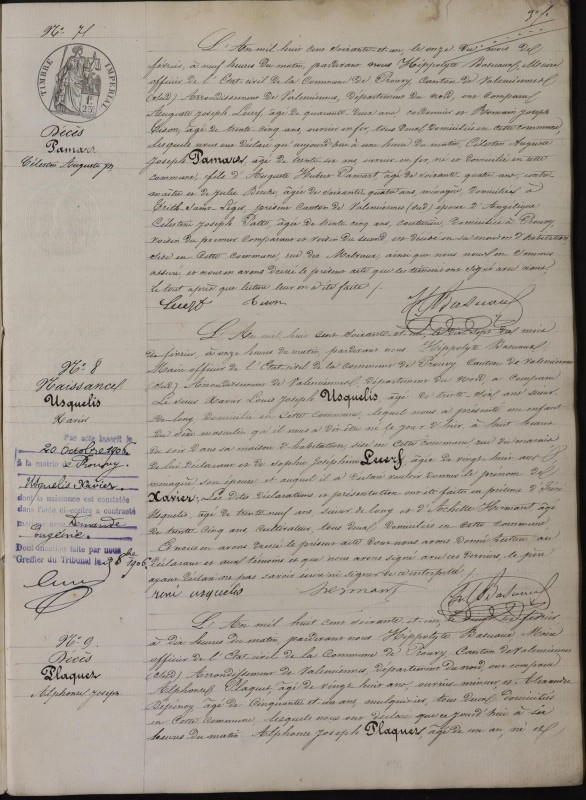 N° 7
TIMBRE IMPERIAL
25c
Décès
Pamart
Célestin Auguste Jph
L'An mil huit cent soixante et un, le onze du mois de
février, à neuf heures du matin, pardevant nous Hippolyte Basuaux, Maire
officier de l'Etat civil de la Commune de Prouvy Canton de Valenciennes
(Sud) Arrondissement de Valenciennes, Département du Nord, ont comparu
Auguste Joseph Lucq, âgé de quarante deux ans, et Joseph
âgé de trente cinq ans, tous deux domiciliés en cette commune,
lesquels nous ont déclaré qu'aujourd'hui à une heure du matin, Célestin Auguste
Joseph Pamart, âgé de trente six ans, né et domicilié en cette
commune, fils d'Auguste Hubert Pamart âgé de soixante quatre ans,
et de Julie âgée de soixante quatre ans, ménagère, domiciliés à
Trith Saint Léger, présent Canton de Valenciennes (Sud) époux d'Angélique
Célestine Joseph âgée de trente cinq ans, couturière, domiciliée à Prouvy,
voisin du premier comparant et voisin du second, est décédé en sa maison d'habitation
sise en cette Commune, rue des ainsi que nous nous en sommes
assuré, et nous en avons dressé le présent acte que les témoins ont signé avec nous,
le tout après que lecture leur en a été faite /.
H Basuaux
N° 8
Naissance
Usquelis
Xavier
Par acte inscrit le
20 Octobre 1906
à la mairie de
Usquelis Xavier
dont la naissance est constatée
dans l'acte ci-contre a contracté
mariage avec
Eugénie
Dont mention faite par nous
Greffier du Tribunal le 1906
L'An mil huit cent soixante et un le dix sept du mois
de février, à onze heures du matin, pardevant nous Hippolyte Basuaux
Maire officier de l'Etat civil de la Commune de Prouvy Canton de Valenciennes
(Sud) Arrondissement de Valenciennes, Département du Nord a comparu
Le sieur Xavier Louis Joseph Usquelis, âgé de trente six ans
de long domicilié en cette Commune, lequel nous a présenté un enfant
du sexe masculin qu'il nous a dit être né le jour d'hier à huit heures
du soir dans sa maison d'habitation, sise en cette commune rue du marais
de lui déclarant et de Sophie Joséphine Lucq âgée de vingt huit ans
ménagère, son épouse et auquel il a déclaré vouloir donner le prénom de
Xavier; Les dites déclarations et présentation ont été faites en présence de
Usquelis, âgé de trente neuf ans, scieur de long et d'Achille Hermant âgé
de trente cinq ans cultivateur, tous deux domiciliés en cette commune
Et nous en avons dressé le présent acte dont nous avons donné lecture au
déclarant et aux témoins et que nous avons signé avec ces derniers, le père
ayant déclaré ne pas savoir écrire ni signer de ce interpellé /.
rené usquelis hermant H Basuaux
N° 9
Décès
Plaquet
Alphonse Joseph
L'An mil huit cent soixante et un, le février
à dix heures du matin, pardevant nous Hippolyte Basuaux Maire
officier de l'Etat civil de la Commune de Prouvy Canton de Valenciennes
(Sud) Arrondissement de Valenciennes, département du nord, ont comparu
Alphonse Plaquet, âgé de vingt huit ans, ouvrier mineur et Alexandre
âgé de cinquante et un ans, mulquinier, tous deux domiciliés
en cette Commune, lesquels nous ont déclaré que ce jourd'hui à six
heures du matin Alphonse Joseph Plaquet, âgé de un an, né et